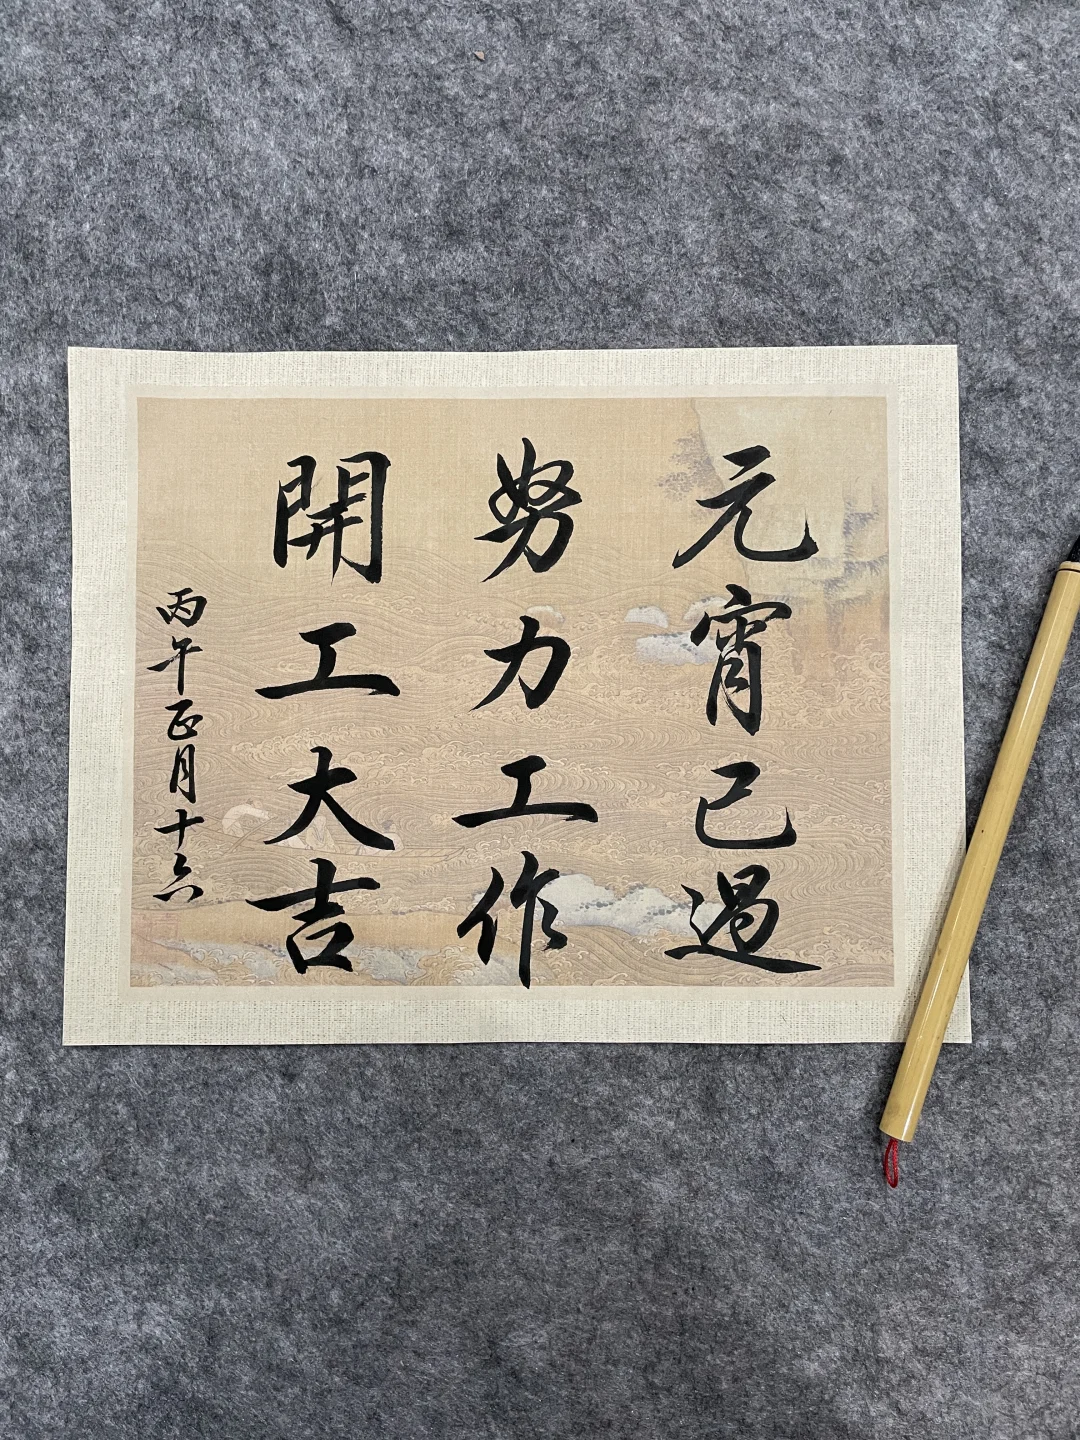 元宵已過
努力工作
開工大吉
丙午正月十六